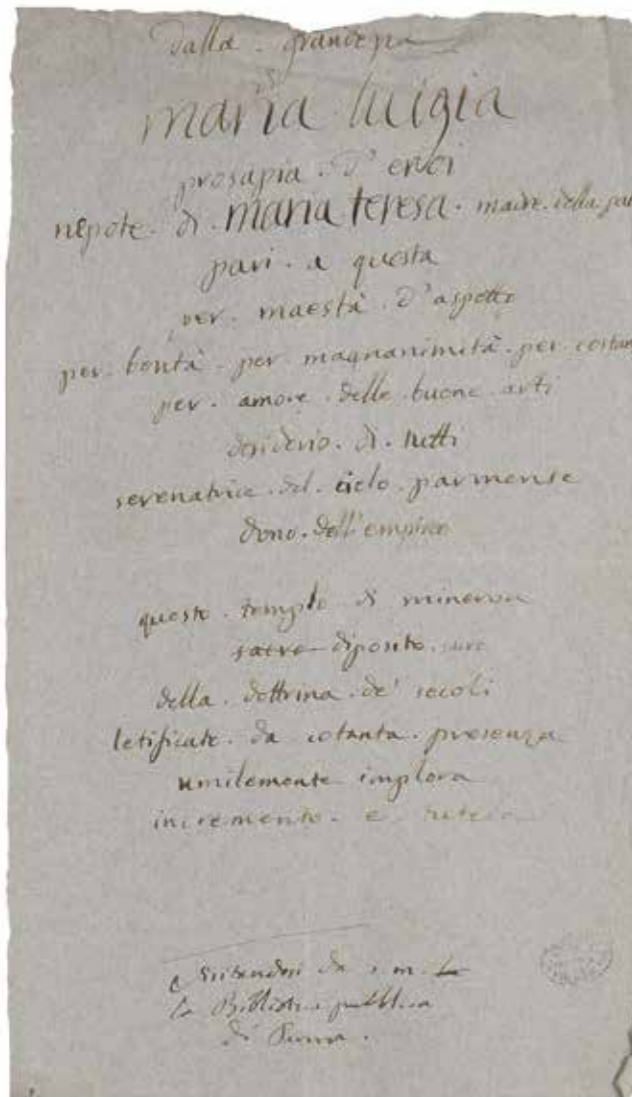 dalla . grandezza
maria luigia
prosapia . d' eroi
nepote . di . maria teresa . madre . della
pari . a questa
per . maestà . d' aspetto
per . bontà . per . magnanimità . per
per . amore . delle . buone . arti
desiderio . di . tutti
serenatrice . del . cielo . parmense
dono . dell' empireo
questo . templo . di minerva
sacro diposito .
della . dottrina . de' secoli
letificato . da cotanta . presenza
umilemente implora
incremento . e
Visitandosi da s . m .
la Biblioteca pubblica
di Parma .